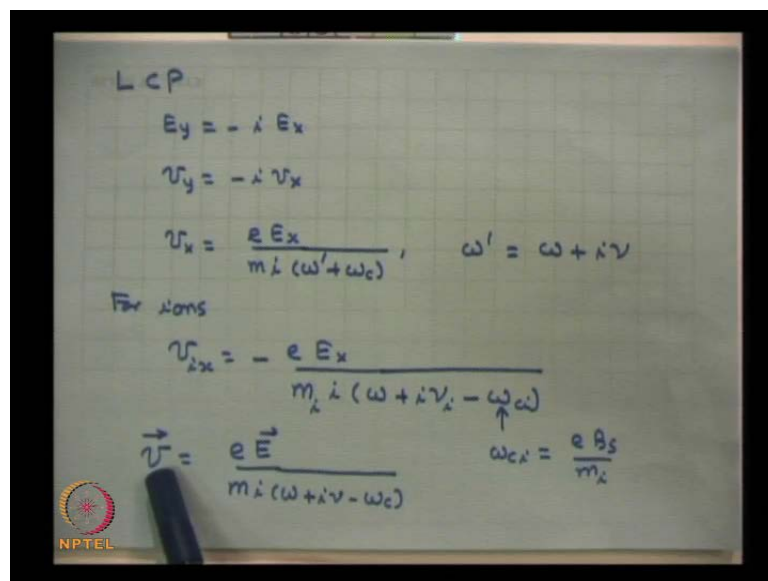 LCP
Ey = - i Ex
vy = - i vx
vx = e Ex / m i (ω' + ωc) , ω' = ω + iν
For ions
vix = - e Ex / mi i (ω + iνi - ωci)
↑
v⃗ = e E⃗ / m i (ω + iν - ωc) ωci = e Bs / mi
NPTEL